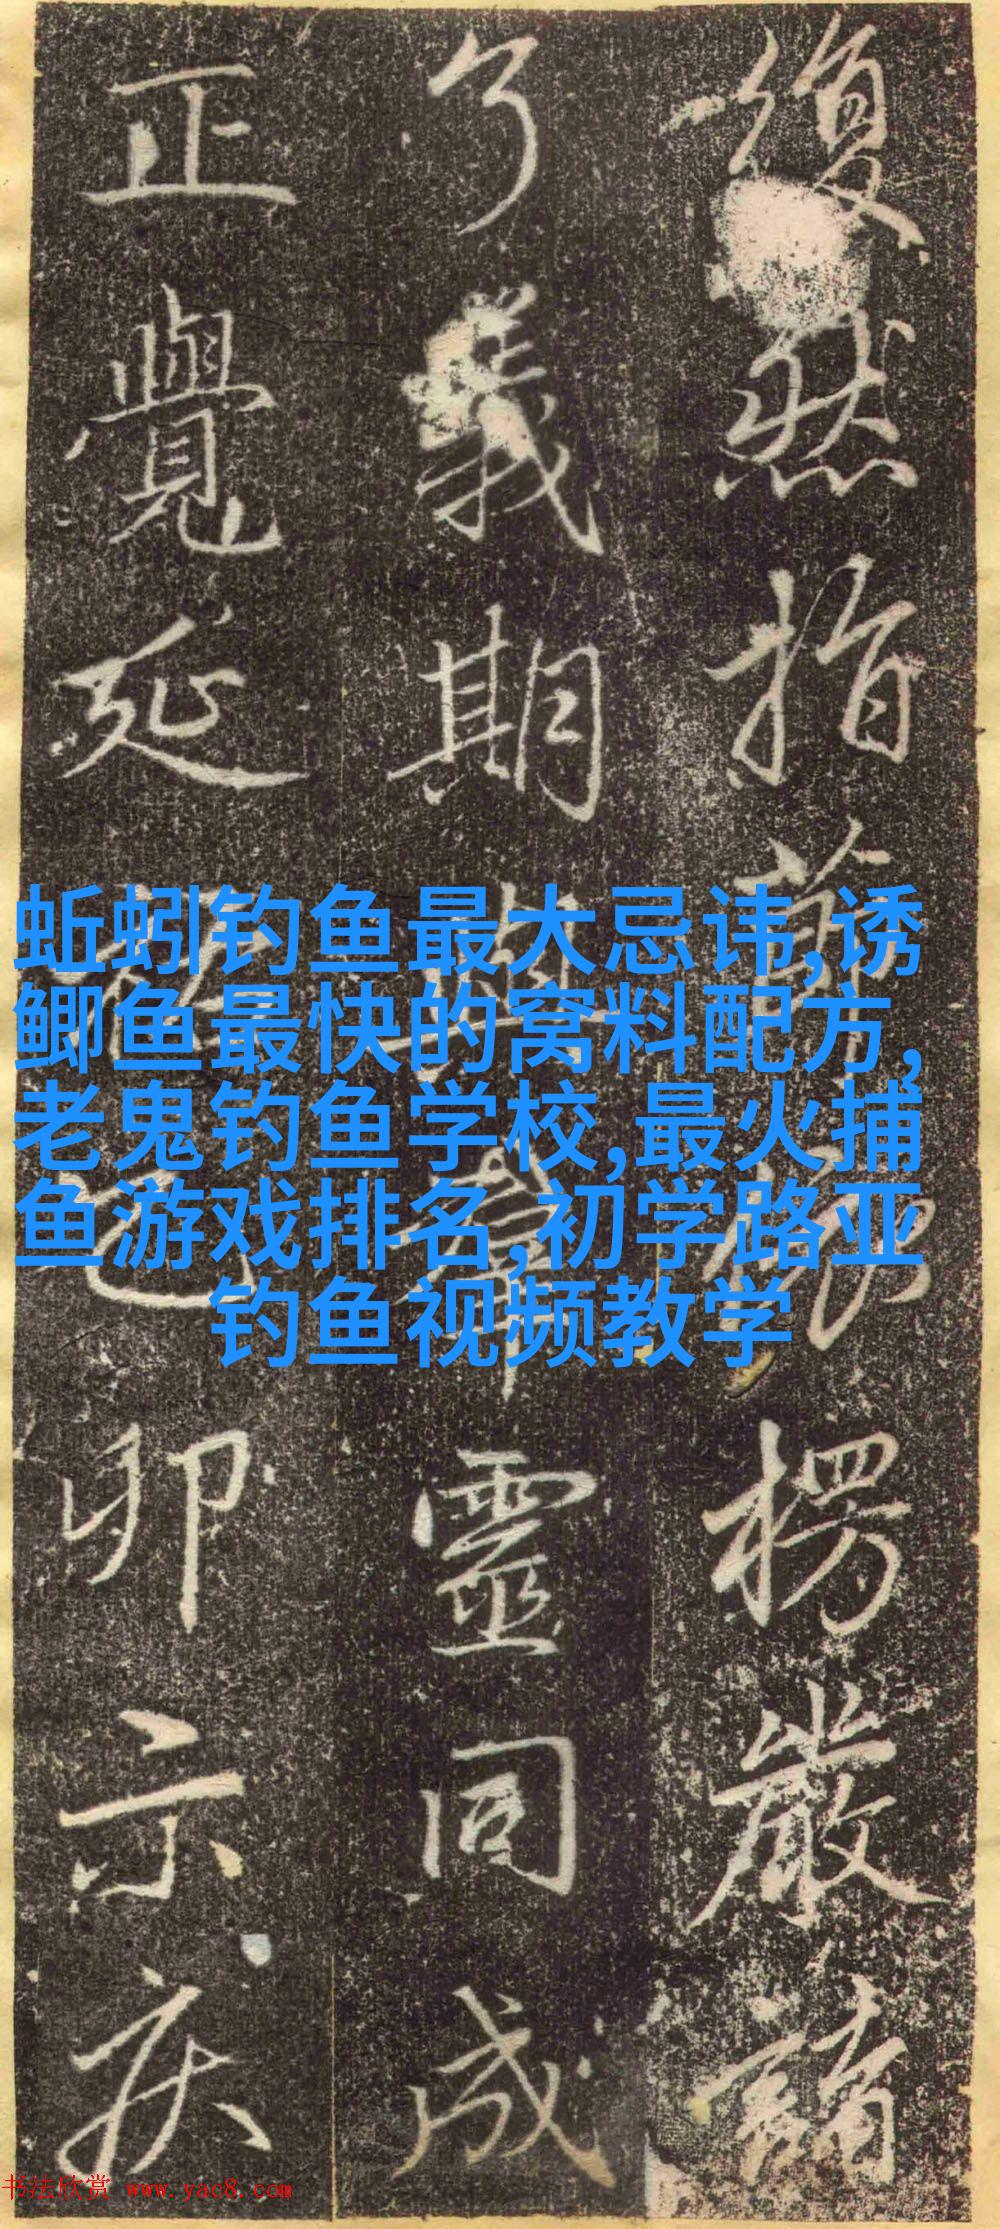 然指前楞嚴
了義期與羣靈同成
正覺延卯示疾
蚯蚓钓鱼最大忌讳,诱
鲫鱼最快的窝料配方,
老鬼钓鱼学校,最火捕
鱼游戏排名,初学路亚
钓鱼视频教学
书法欣赏 www.yac8.com